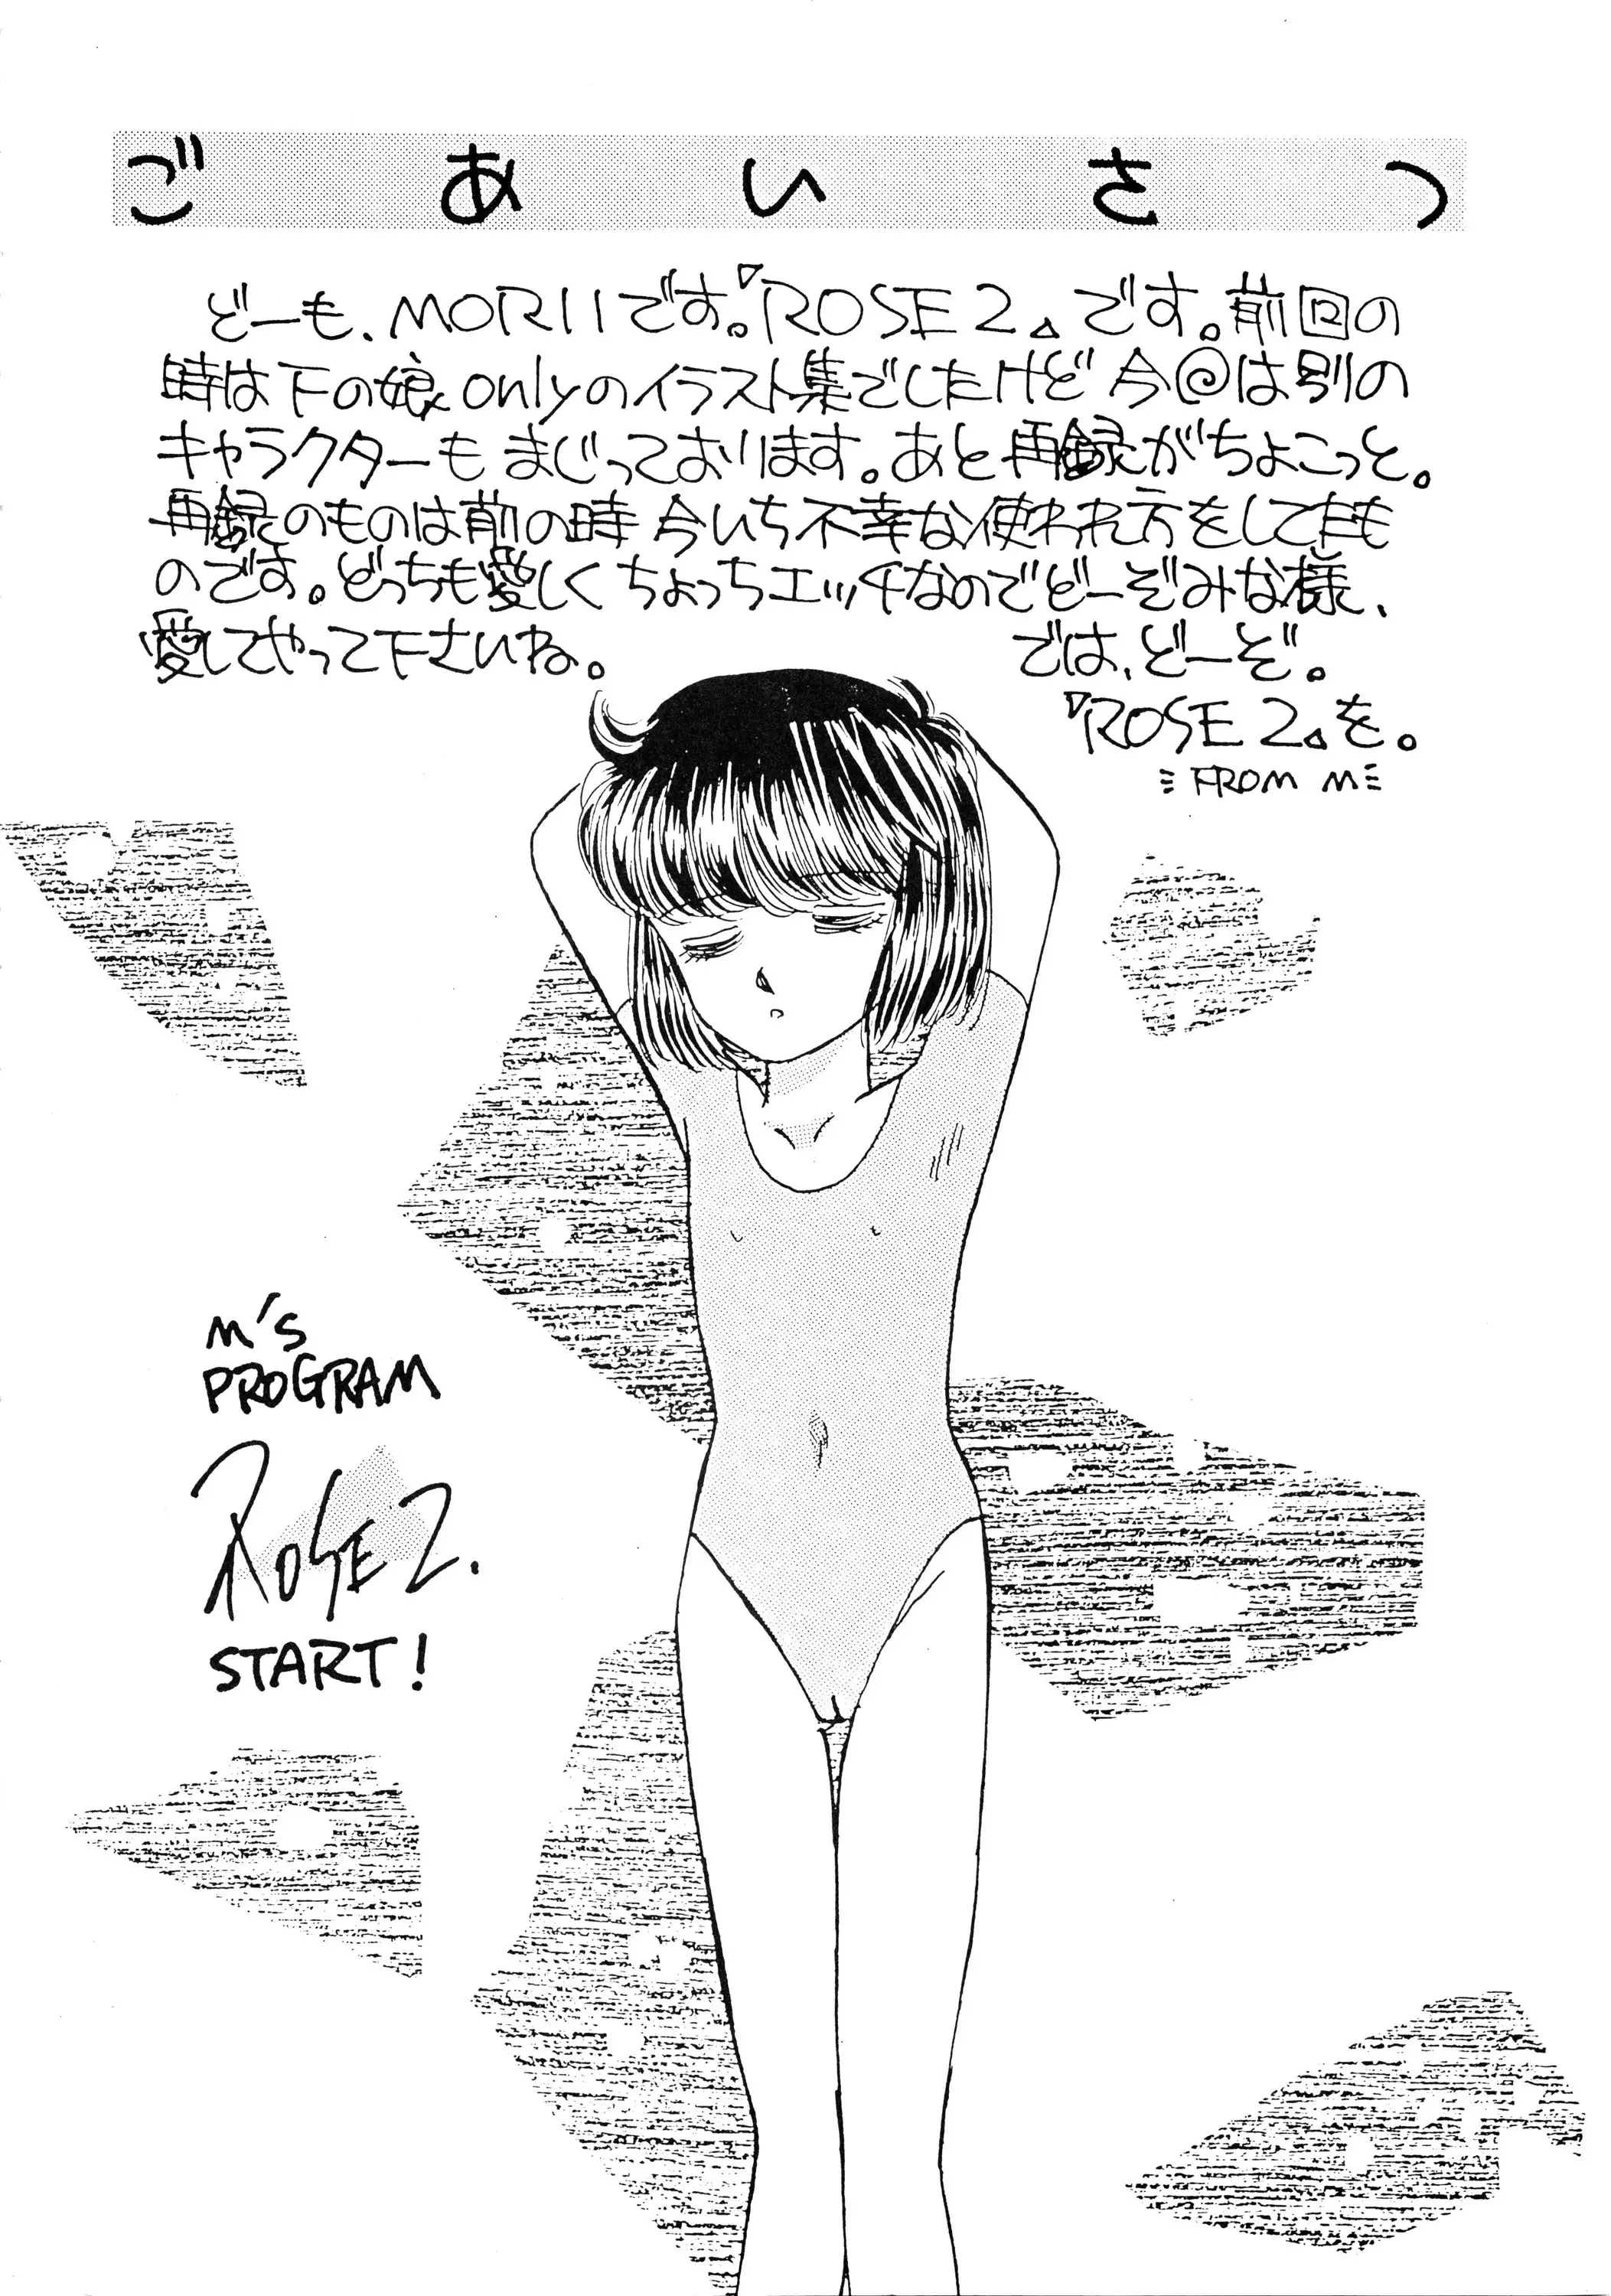 ごあいさつ
どーも、MORIIです。『ROSE 2』です。前回の
時は下の娘onlyのイラスト集でしたけど今@は別の
キャラクターもまじっております。あと再録がちょこっと。
再録のものは前の時今いち不幸な使われ方をしてたも
のです。どっちも愛しくちょっちエッチなのでどーぞみな様、
愛してやって下さいね。
では、どーぞ。
『ROSE 2』を。
FROM M
M's
PROGRAM
ROSE 2.
START!